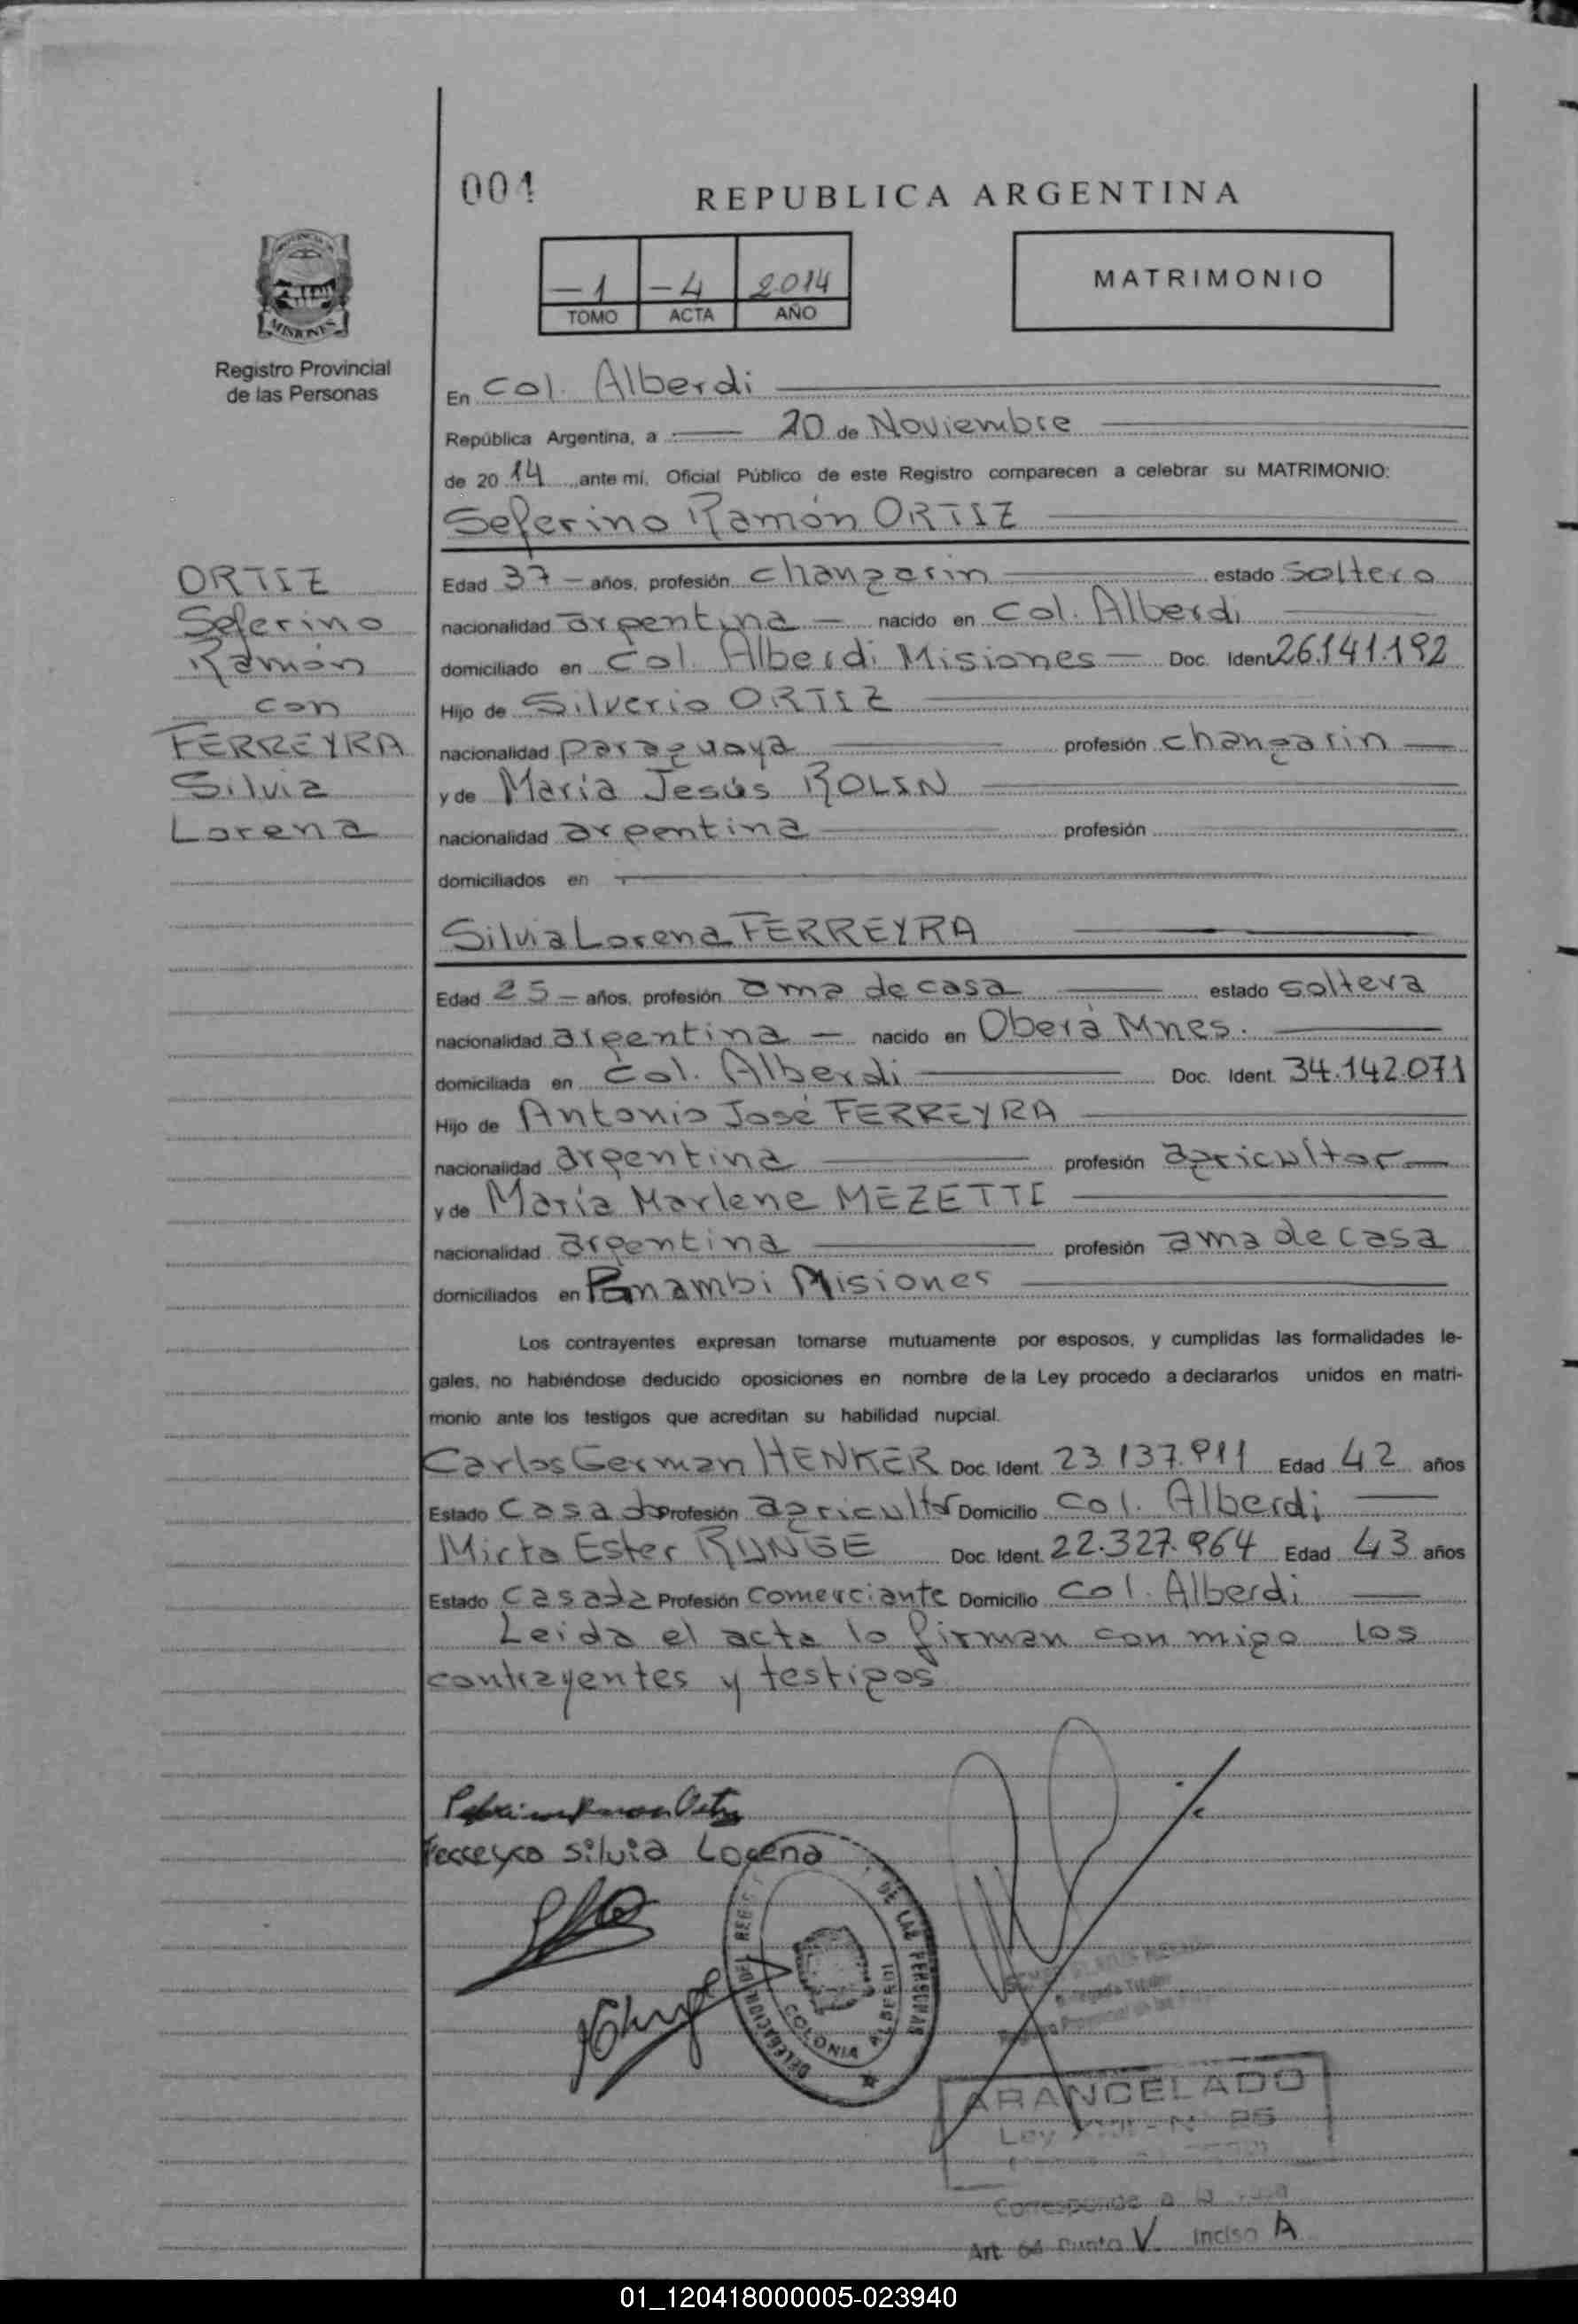 001
REPUBLICA ARGENTINA
-1 -4 2014
TOMO ACTA AÑO
MATRIMONIO
MISIONES
Registro Provincial
de las Personas
En Col. Alberdi
República Argentina, a 20 de Noviembre
de 20 14 ante mí, Oficial Público de este Registro comparecen a celebrar su MATRIMONIO:
Seferino Ramón ORTIZ
ORTIZ
Seferino
Ramón
con
FERREYRA
Silvia
Lorena
Edad 37 - años, profesión changarin estado soltero
nacionalidad argentina - nacido en Col. Alberdi
domiciliado en Col. Alberdi Misiones - Doc. Ident 26.141.192
Hijo de Silverio ORTIZ
nacionalidad paraguaya profesión changarin
y de María Jesús ROLIN
nacionalidad argentina profesión
domiciliados en
Silvia Lorena FERREYRA
Edad 25 - años, profesión ama de casa estado soltera
nacionalidad argentina - nacido en Oberá Mnes.
domiciliada en Col. Alberdi Doc. Ident. 34.142.071
Hijo de Antonio José FERREYRA
nacionalidad argentina profesión agricultor
y de María Marlene MEZETTI
nacionalidad argentina profesión ama de casa
domiciliados en Panambi Misiones
Los contrayentes expresan tomarse mutuamente por esposos, y cumplidas las formalidades le-
gales, no habiéndose deducido oposiciones en nombre de la Ley procedo a declararlos unidos en matri-
monio ante los testigos que acreditan su habilidad nupcial.
Carlos German HENKER Doc. Ident. 23.137.911 Edad 42 años
Estado Casado Profesión agricultor Domicilio Col. Alberdi
Mirta Ester RUNGE Doc. Ident. 22.327.964 Edad 43 años
Estado Casada Profesión Comerciante Domicilio Col. Alberdi
Leida el acta lo firman con migo los
contrayentes y testigos
Ferreyra Silvia Lorena
DELEGACION DEL REGIS DE LAS PERSONAS
COLONIA ALBERDI
ARANCELADO
Ley Nº 25
Corresponde a la
Art. 64 Punto V Inciso A
01_120418000005-023940